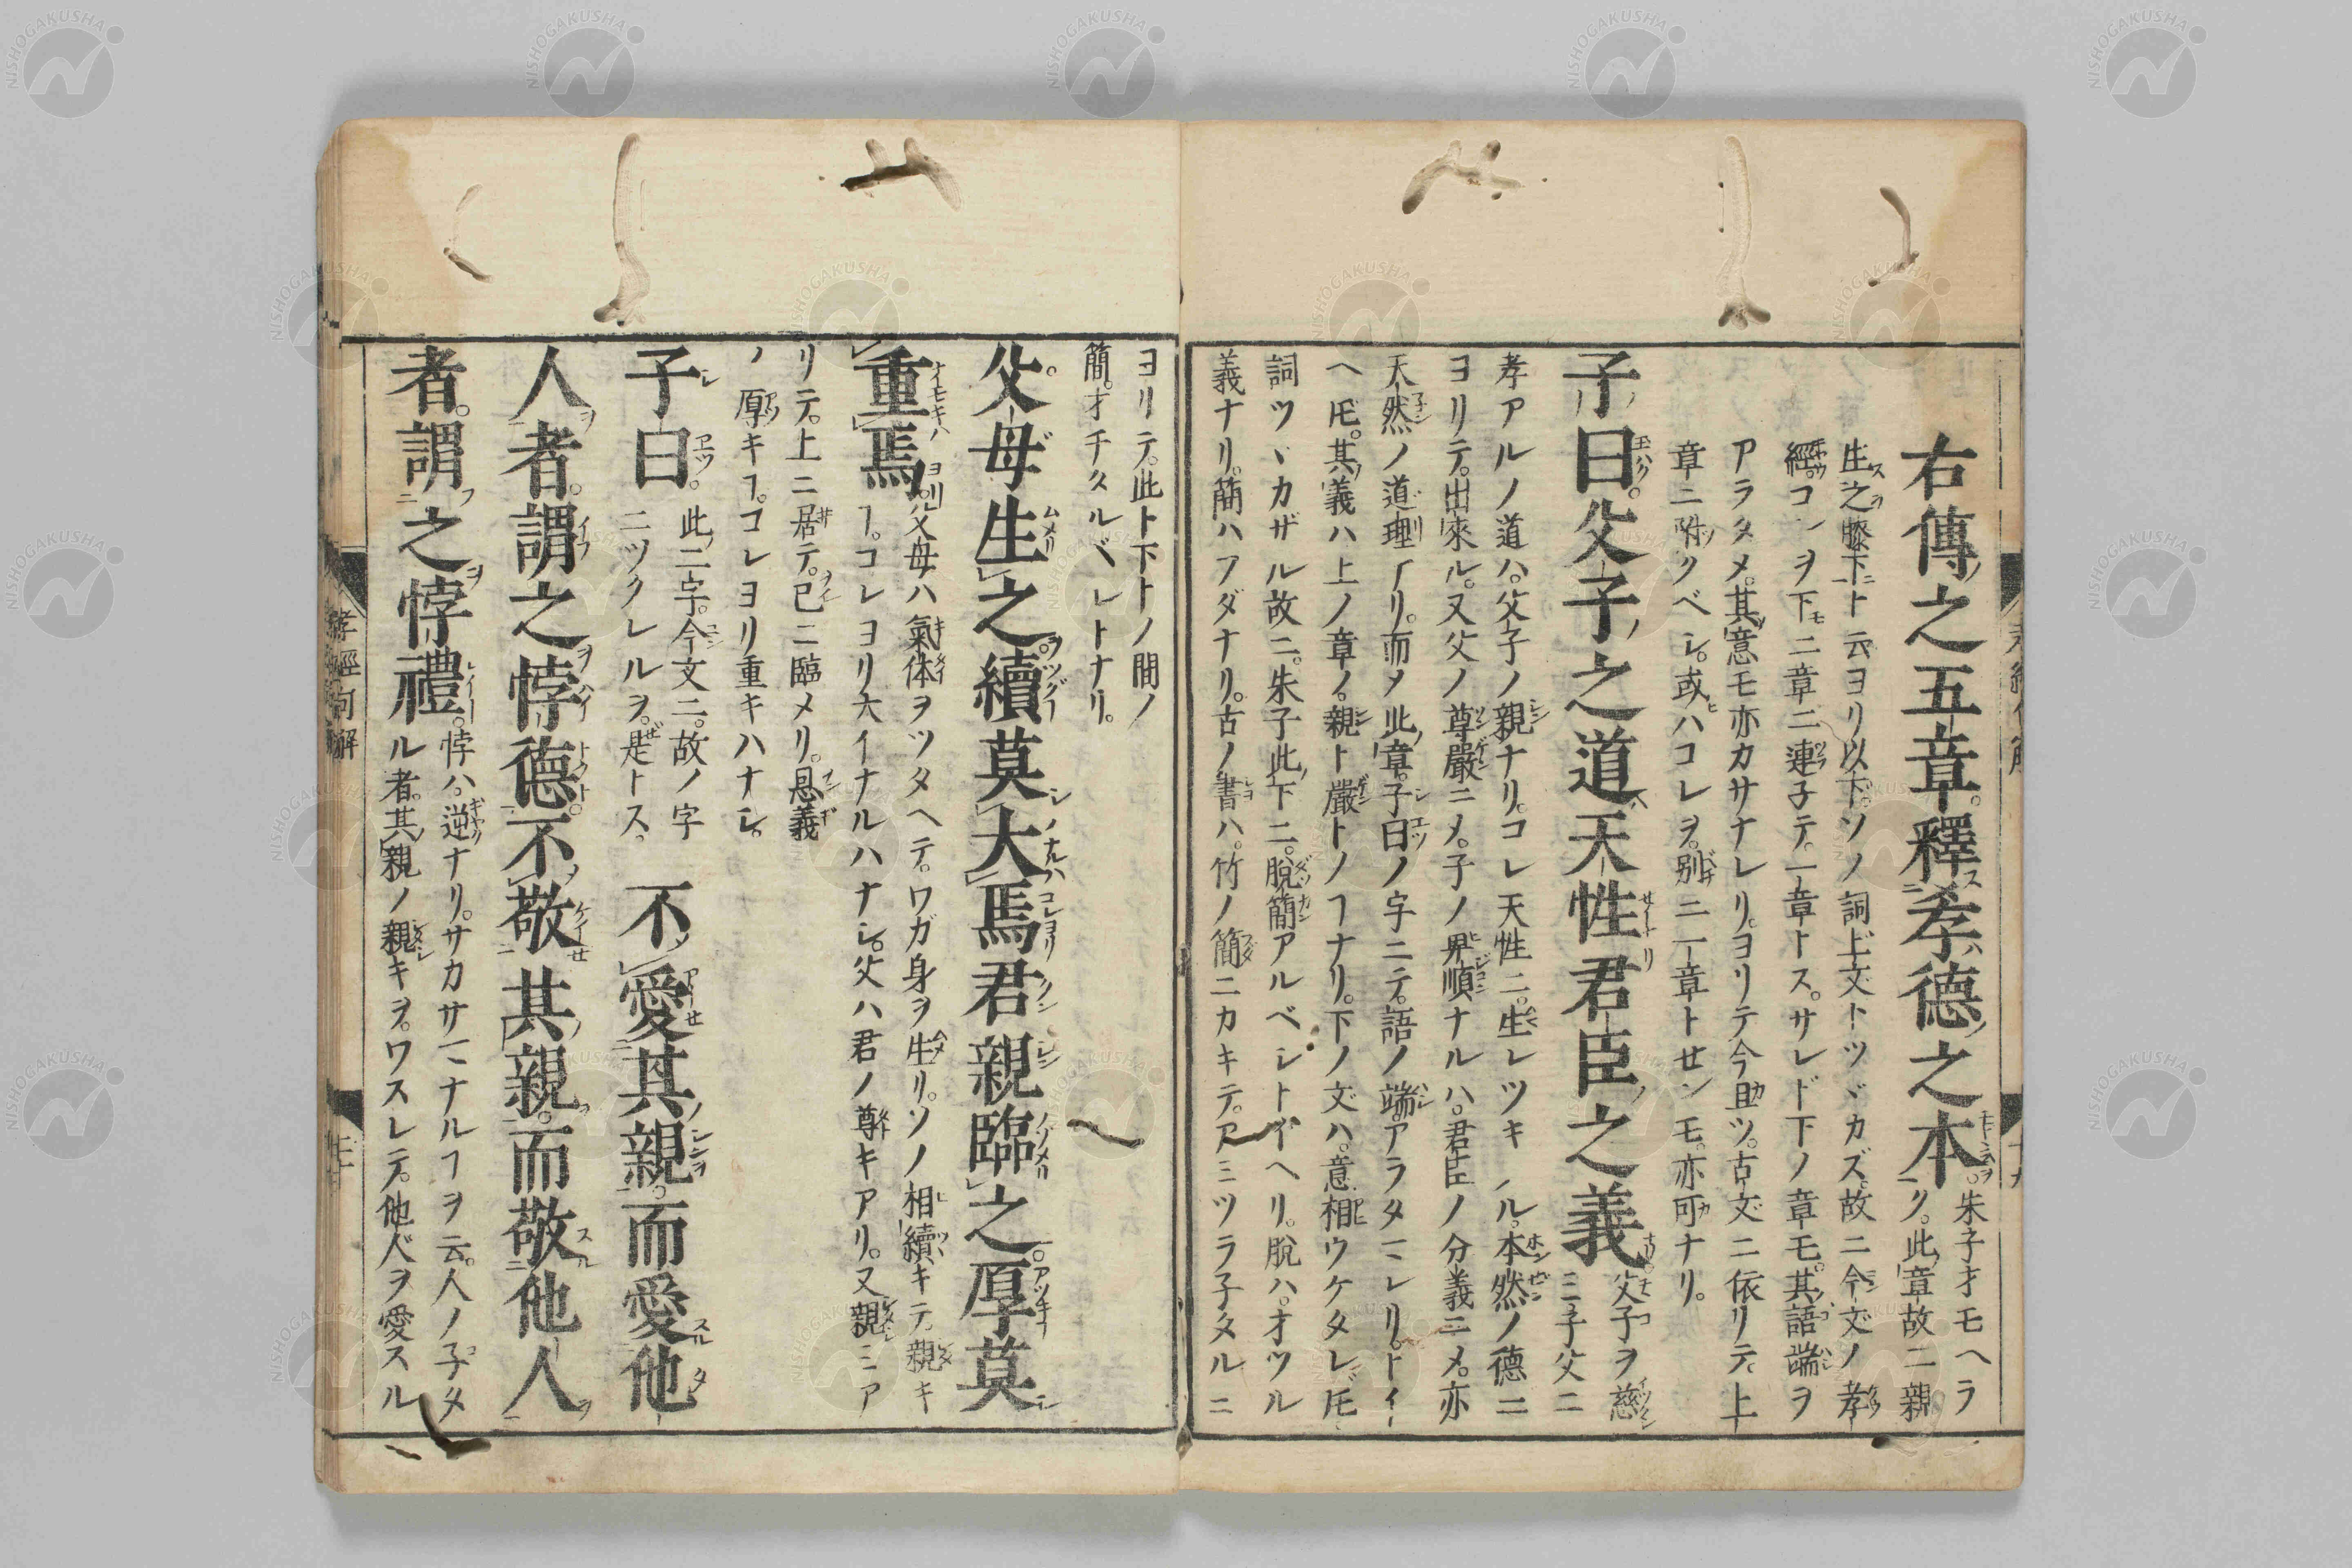 右傳之五章釋孝德之本朱子オモヘラ
ク此章故ニ親
生之膝下ト云ヨリ以下ソノ詞上文トツヾカズ故ニ今文ノ孝
經コレヲ下ニ章ニ連子テ一章トスサレド下ノ章モ其語端ヲ
アラタメ其意モ亦カサナレリヨリテ今且ツ古文ニ依リテ上
章ニ附クベシ或ハコレヲ別ニ一章トセンモ亦可ナリ
子曰父子之道天性君臣之義父子ヲ慈
ミ子父ニ
孝アルノ道ハ父子ノ親ナリコレ天性ニ生レツキ ル本然ノ德ニ
ヨリテ出來ル又父ノ尊嚴ニメ子ノ畀順ナルハ君臣ノ分義ニメ亦
天然ノ道理ナリ而メ此章子曰ノ字ニテ語ノ端アラタマレリトイ
ヘ𪜈其義ハ上ノ章ノ親ト嚴トノヿナリ下ノ文ハ意相ウケタレ𪜈
詞ツヾカザル故ニ朱子此下ニ脫簡アルベシトイヘリ脫ハオツル
義ナリ簡ハフダナリ古ノ書ハ竹ノ簡ニカキテアミツラ子タルニ
ヨリテ此ト下トノ間ノ
簡オチタルベレトナリ
父母生之續莫大焉君親臨之厚莫
重焉父母ハ氣体ヲツタヘテワガ身ヲ生リソノ相續キテ親キ
ヿコレヨリ大イナルハナシ父ハ君ノ尊キアリ又親ミア
リテ上ニ居テ已ニ臨メリ恩義
ノ厚キヿコレヨリ重キハナシ
子曰此二字今文ニ故ノ字
ニツクレルヲ是トス 不愛其親而愛他
人者謂之悖德不敬其親而敬他人
者謂之悖禮悖ハ逆ナリサカサマナルヿヲ云人ノ子タ
ル者其親ノ親キヲワスレテ他人ヲ愛スル
孝經句解